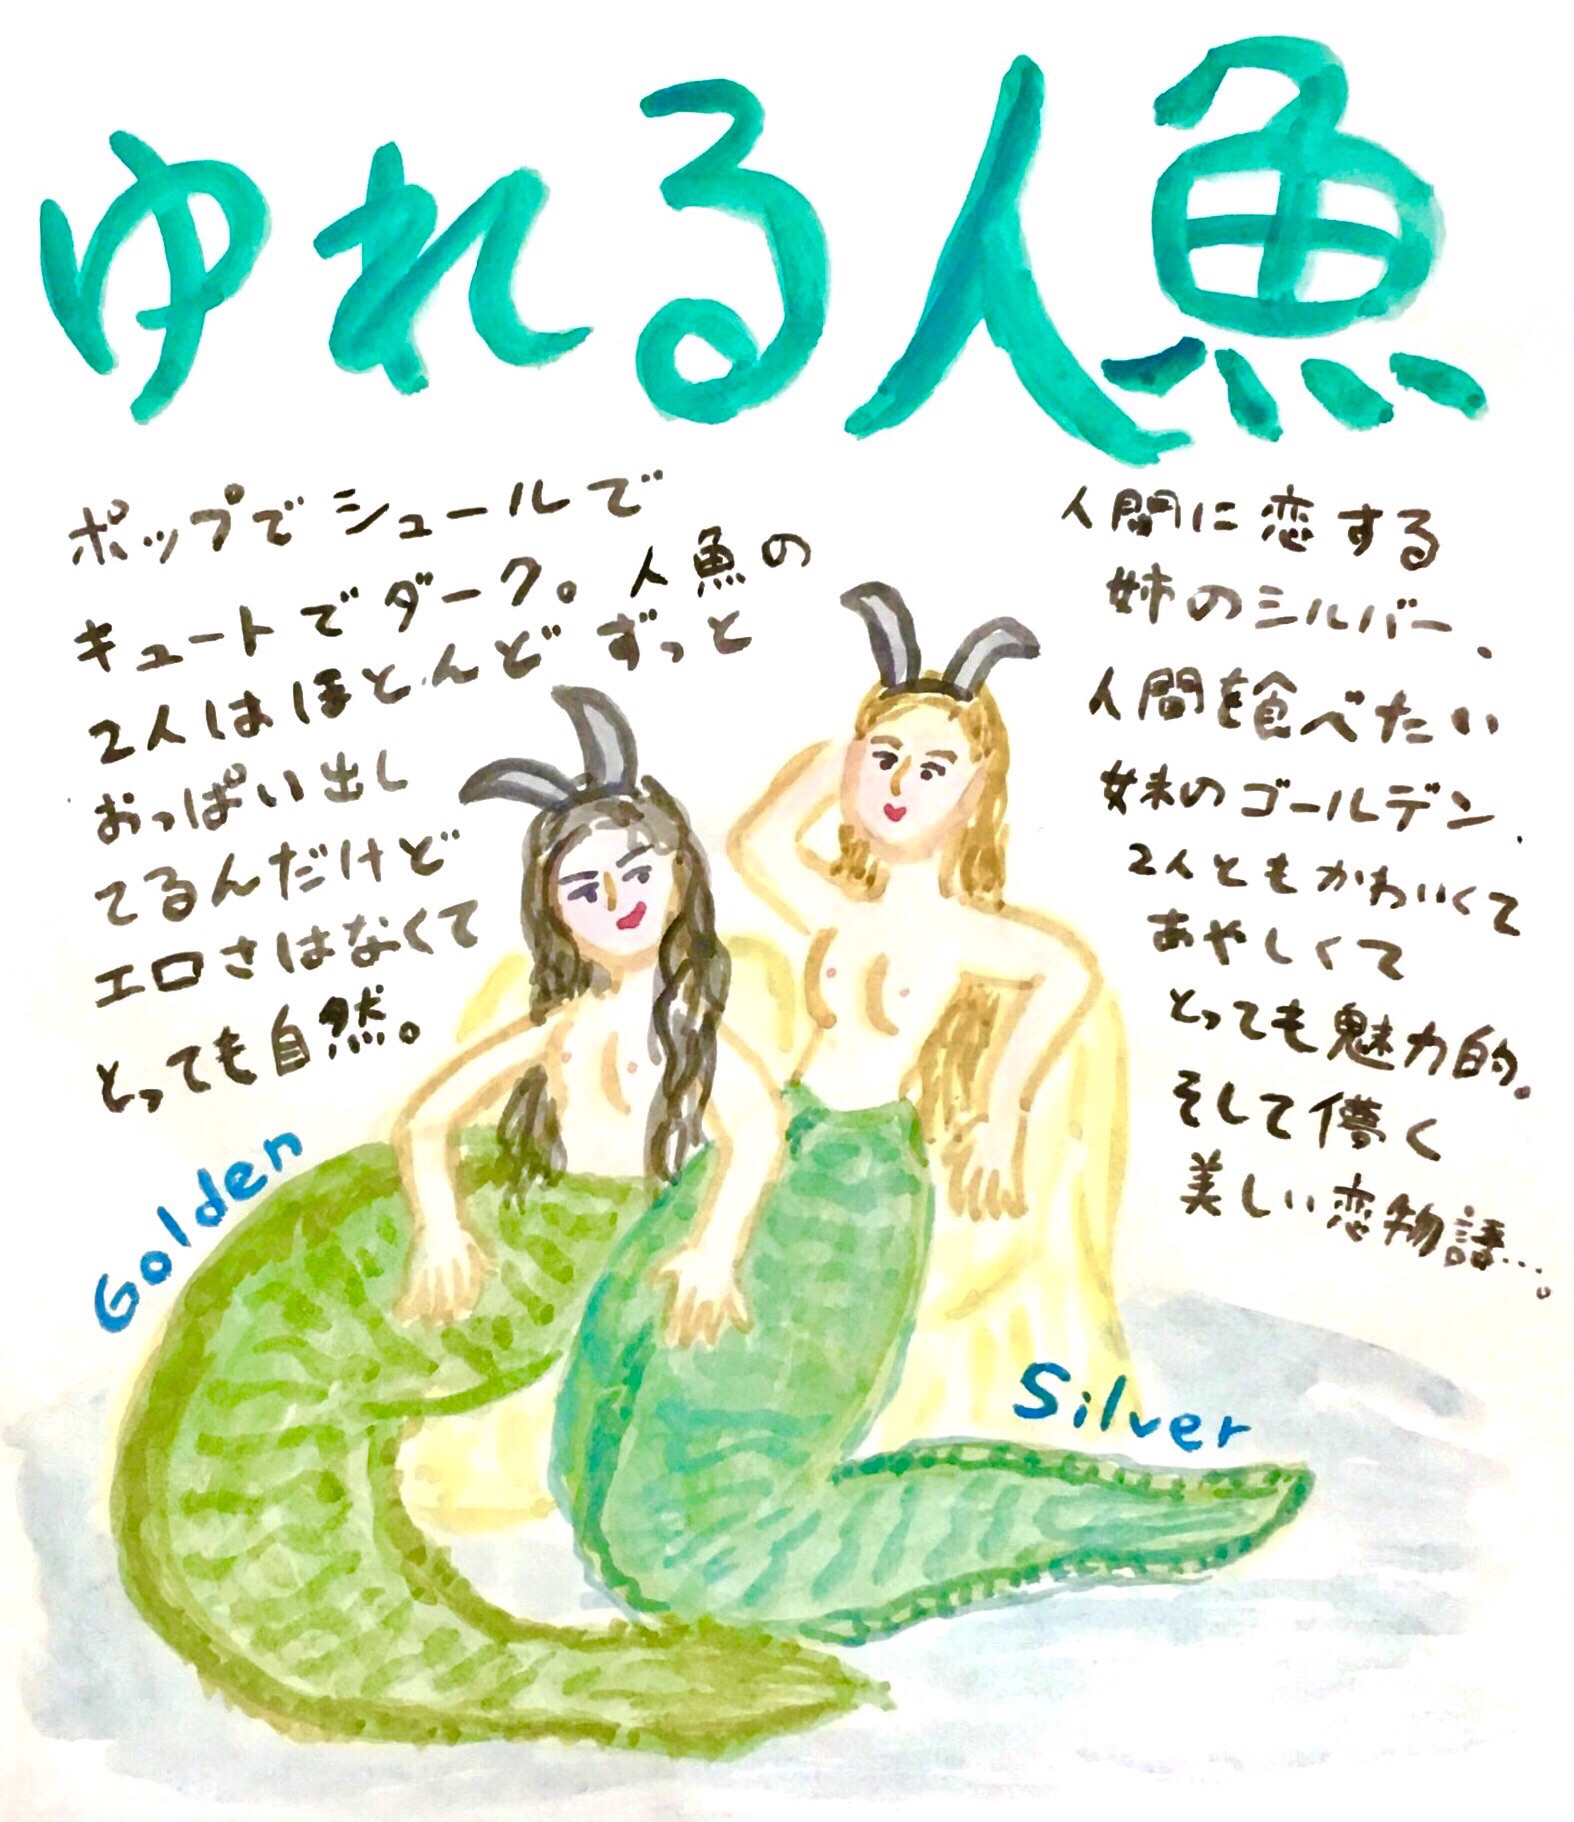 ゆれる人魚
ポップでシュールで
キュートでダーク。人魚の
2人はほとんどずっと
おっぱい出し
てるんだけど
エロさはなくて
とっても自然。
人間に恋する
姉のシルバー、
人間を食べたい
妹のゴールデン、
2人ともかわいくて
あやしくて
とっても魅力的。
そして儚く
美しい恋物語…。
Golden
Silver